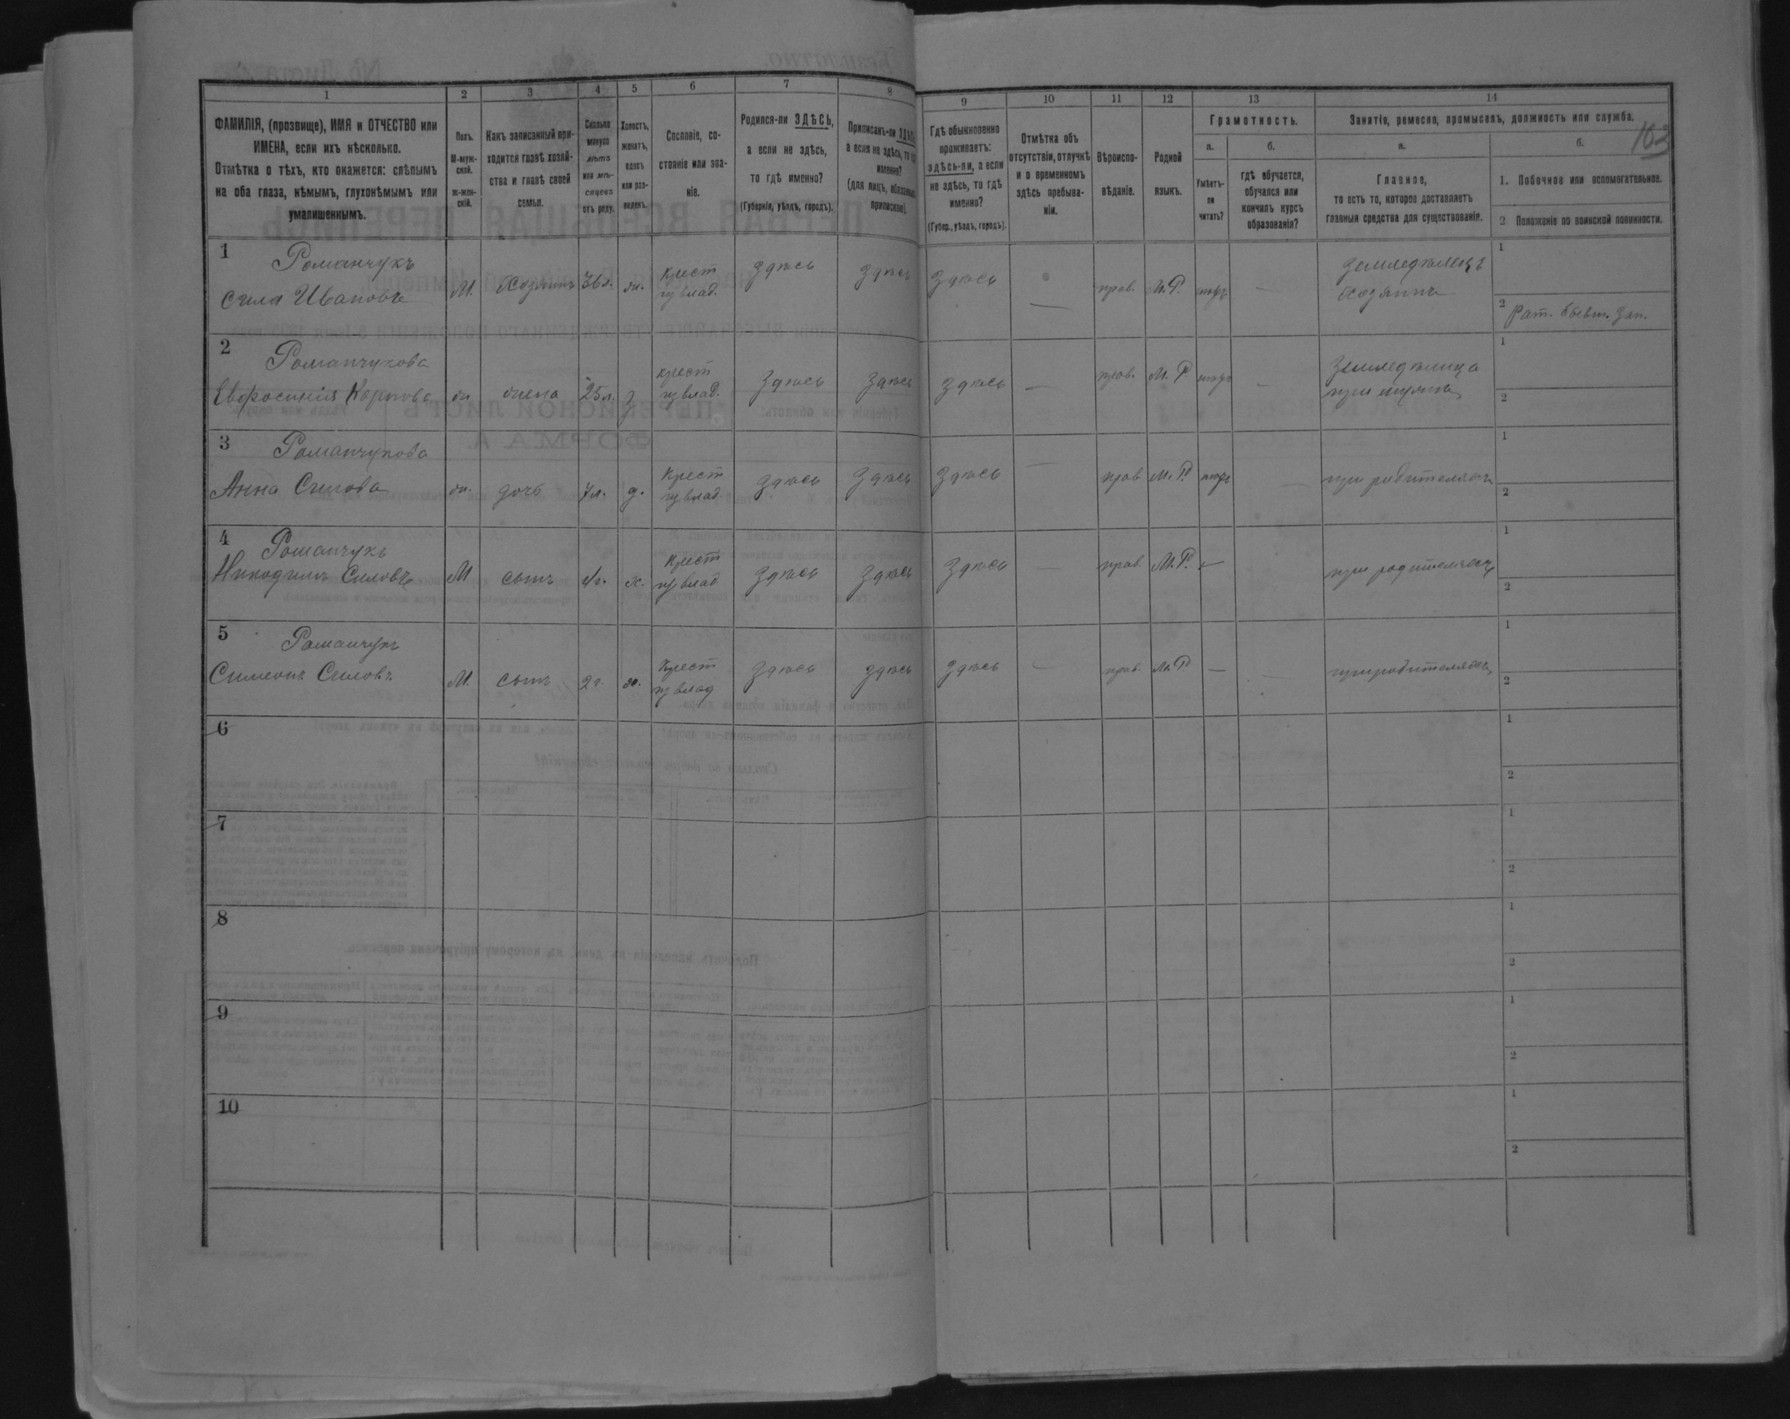 103
1 2 3 4 5 6 7 8 9 10 11 12 13 14
ФАМИЛІЯ, (прозвище), ИМЯ и ОТЧЕСТВО или
ИМЕНА, если ихъ нѣсколько.
Отмѣтка о тѣхъ, кто окажется: слѣпымъ
на оба глаза, нѣмымъ, глухонѣмымъ или
умалишеннымъ.
Полъ.
М-муж-
ской.
ж-жен-
скій.
Какъ записанный при-
ходится главѣ хозяй-
ства и главѣ своей
семьи.
Сколько
минуло
лѣтъ
или мѣ-
сяцевъ
отъ роду.
Холостъ,
женатъ,
вдовъ
или раз-
веденъ.
Сословіе, со-
стояніе или зва-
ніе.
Родился-ли ЗДѢСЬ,
а если не здѣсь,
то гдѣ именно?
(Губернія, уѣздъ, городъ).
Приписанъ-ли ЗДѢСЬ,
а если не здѣсь, то гдѣ
именно?
(для лицъ, обязанныхъ
припиской).
Гдѣ обыкновенно
проживаетъ:
здѣсь-ли, а если
не здѣсь, то гдѣ
именно?
(Губер., уѣздъ, городъ).
Отмѣтка объ
отсутствіи, отлучкѣ
и о временномъ
здѣсь пребыва-
ніи.
Вѣроиспо-
вѣданіе.
Родной
языкъ.
Грамотность.
а.
Умѣетъ-
ли
читать?
б.
гдѣ обучается,
обучался или
кончилъ курсъ
образованія?
Занятіе, ремесло, промыселъ, должность или служба.
а.
Главное,
то есть то, которое доставляетъ
главныя средства для существованія.
б.
1. Побочное или вспомогательное.
2 Положеніе по воинской повинности.
1 Романчукъ
Сила Ивановъ М. Хозяинъ 36 л. ж. крест из влад. здѣсь здѣсь здѣсь — прав. М.Р. негр — земледѣлецъ хозяинъ 1
2 Рат. бывш. зап.
2 Романчукова
Евфросинія Карпова ж жена 25 л. з крест из влад. здѣсь здѣсь здѣсь — прав. М.Р. негр — земледѣлица при мужѣ 1
2
3 Романчукова
Анна Силова ж. дочь 7 л. д. крест из влад. здѣсь здѣсь здѣсь — прав М.Р. негр — при родителяхъ 1
2
4 Романчукъ
Никодимъ Силовъ М сынъ х. крест из влад здѣсь здѣсь здѣсь — прав М.Р. — при родителяхъ 1
2
5 Романчукъ
Симеонъ Силовъ М. сынъ 2 г. х. крест из влад здѣсь здѣсь здѣсь — прав М.Р — при родителяхъ 1
2
6 1
2
7 1
2
8 1
2
9 1
2
10 1
2